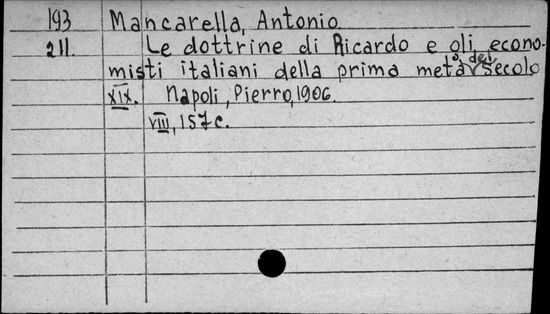 193 Mancarella, Antonio.
211. Le dottrine di Ricardo e oli econo-
misti italiani della prima metà del secolo
XIX. Napoli, Pierro, 1906.
VIII, 157 c.